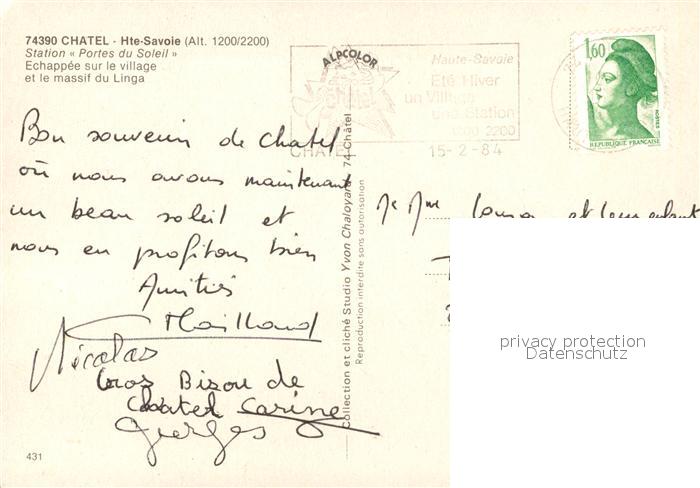 74390 CHATEL - Hte-Savoie (Alt. 1200/2200)
Station « Portes du Soleil »
Echappée sur le village
et le massif du Linga
ALPCOLOR
Haute-Savoie
Eté Hiver
un Village
une Station
1200 2200
Châtel
CHATEL
15-2-84
1,60
REPUBLIQUE FRANÇAISE
Bon souvenir de Chatel
où nous avons maintenant
un beau soleil et
nous en profitons bien
Amitiés
Maillard
Nicolas
Gros Bisou de
Chatel Carine
Georges
Collection et cliché Studio Yvon Chaloyard 74-Châtel
Reproduction interdite sans autorisation
et leurs enfants
privacy protection
Datenschutz
431